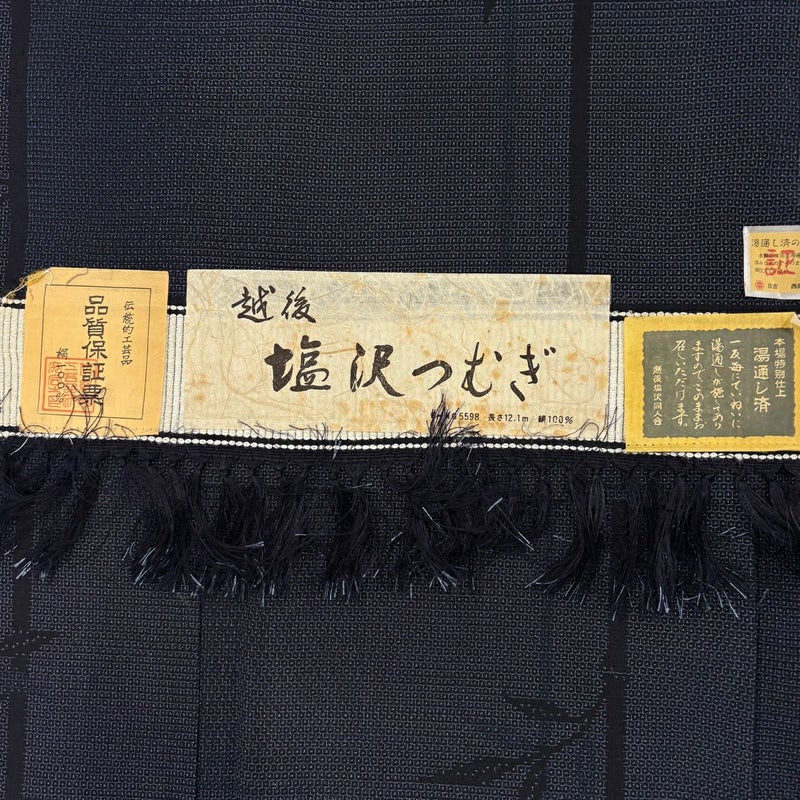 伝統的工芸品
品質保証票
絹一〇〇%
越後
塩沢つむぎ
5598 長さ12.1m 絹100%
本場特別仕上
湯通し済
一反毎にていねいに
湯通しが施してあり
ますのでこのままお
召しいただけます。
越後塩沢同人会
湯通し済の
証